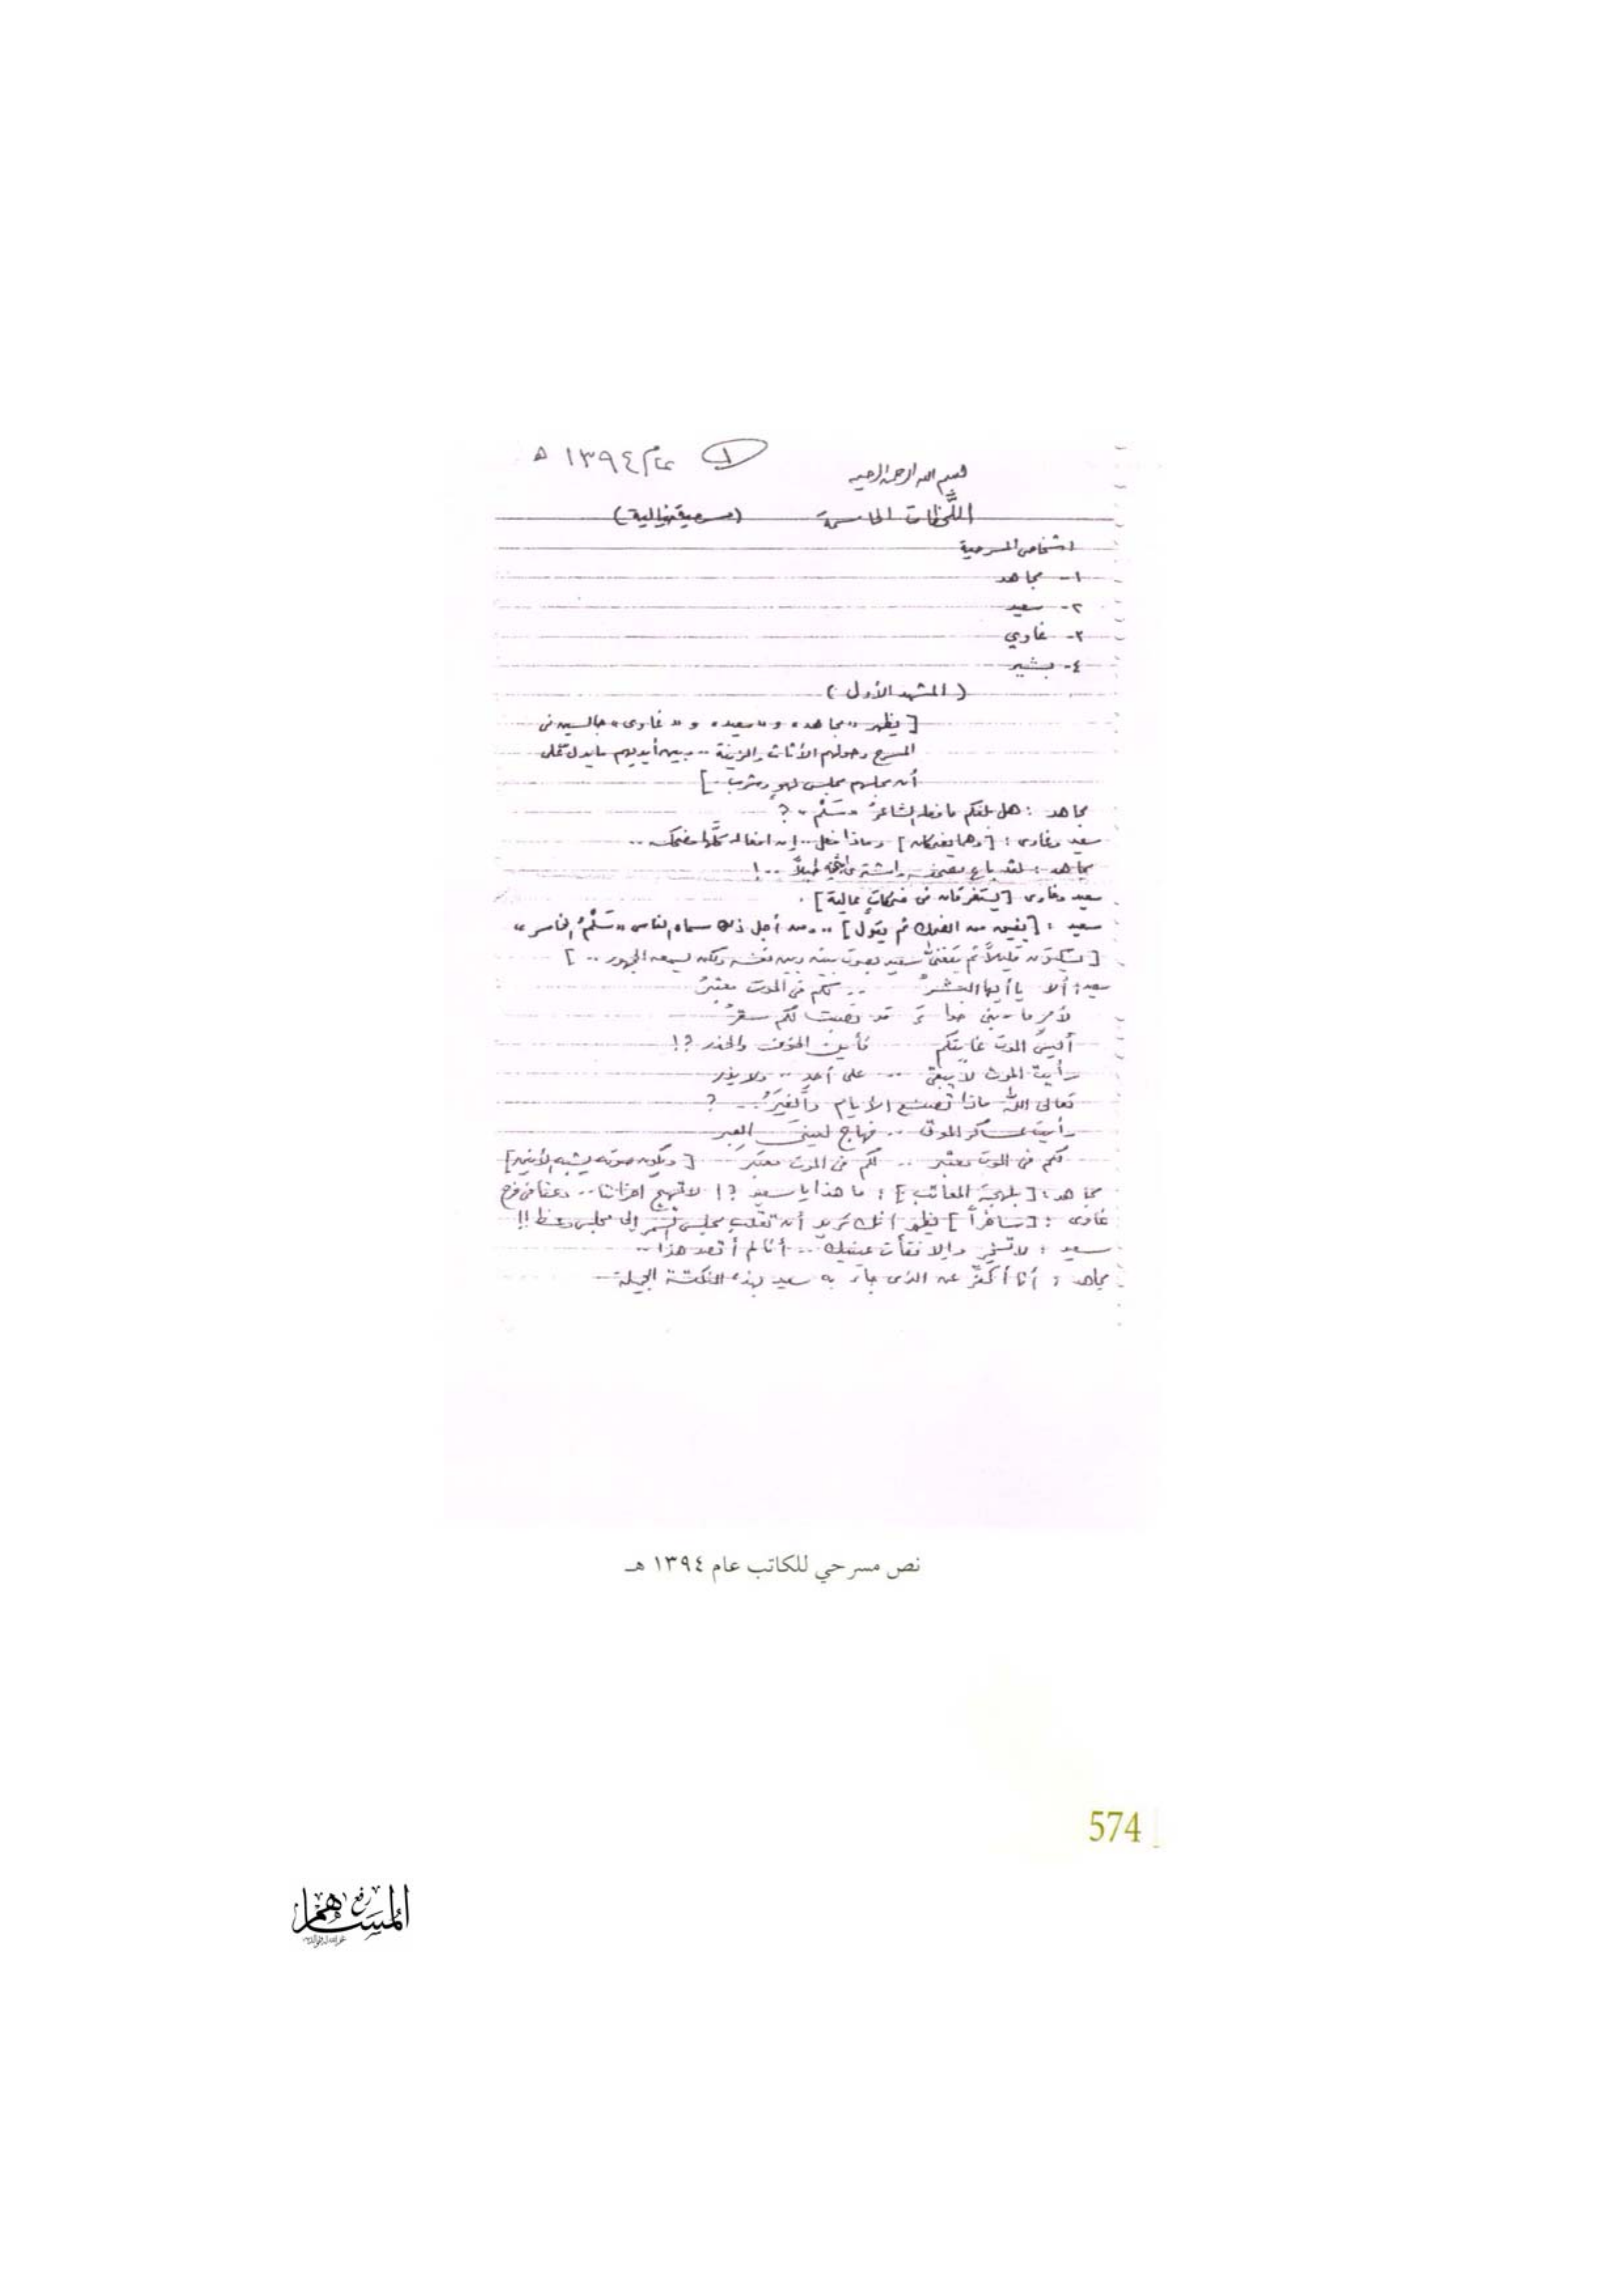 ١ عام ١٣٩٤ هـ
بسم الله الرحمن الرحيم
اللَّحظات الحاسمة (مسرحية خيالية)
اشخاص المسرحية
١- مجاهد
٢- سعيد
٣- غاوي
٤- بشير
(المشهد الأول)
[يظهر «مجاهد» و«سعيد» و«غاوى» جالسين فى
المسرح وحولهم الأثاث والزينة .. وبين أيديهم ما يدل على
أن مجلسهم مجلس لهو وشرب.]
مجاهد : هل بلغكم ما فعل الشاعرُ «سَلْم»؟
سعيد وغاوى : [وهما يضحكان] وماذا فعل .. إن افعاله كلَّها مضحكة ..
مجاهد : لقد باع مصحفه واشترى طبلاً .. !
سعيد وغاوى [يستغرقان فى ضحكاتٍ عالية].
سعيد : [يفيق من الضحك ثم يقول] .. ومن أجل ذلك سماه الناس «سَلْمُ الخاسر»
[يسكتون قليلاً ثم يتغنى سعيد بصوت بينه وبين نفسه ولكن يسمعه الجمهور ..]
سعيد : ألا يا أيها البشرُ .. لكم فى الموت معتبرُ
لأمرٍ ما بنى حواءَ قد نصبت لكم سقرُ
أليسَ الموت غايتكم فأين الخوف والحذر ؟!
رأيت الموت لا يبقى .. على أحدٍ .. ولا يذر
تعالى اللهُ ماذا تصنع الأيام والغِيَرُ .. ؟
رأيت عساكر الموتى .. فهاج لعينى العِبر
لكم فى الموت معتبر .. لكم فى الموت معتبر [ويكون صوته يشبه الأنين]
مجاهد : [بلهجة المعاتب] : ما هذا يا سعيد ؟! لا تهيج احزاننا .. دعنا فى فرح
غاوى : [ساخراً] يظهر أنك تريد أن تقلب مجلس السَّمر إلى مجلس وعظ !!
سعيد : لا تسخر وإلا فقأت عينيك .. أنا لم أقصد هذا ..
مجاهد : أنا أكفِّر عن الذى جاء به سعيد بهذه النكتة الجميلة
نص مسرحي للكاتب عام ١٣٩٤ هـ
574
المساهم